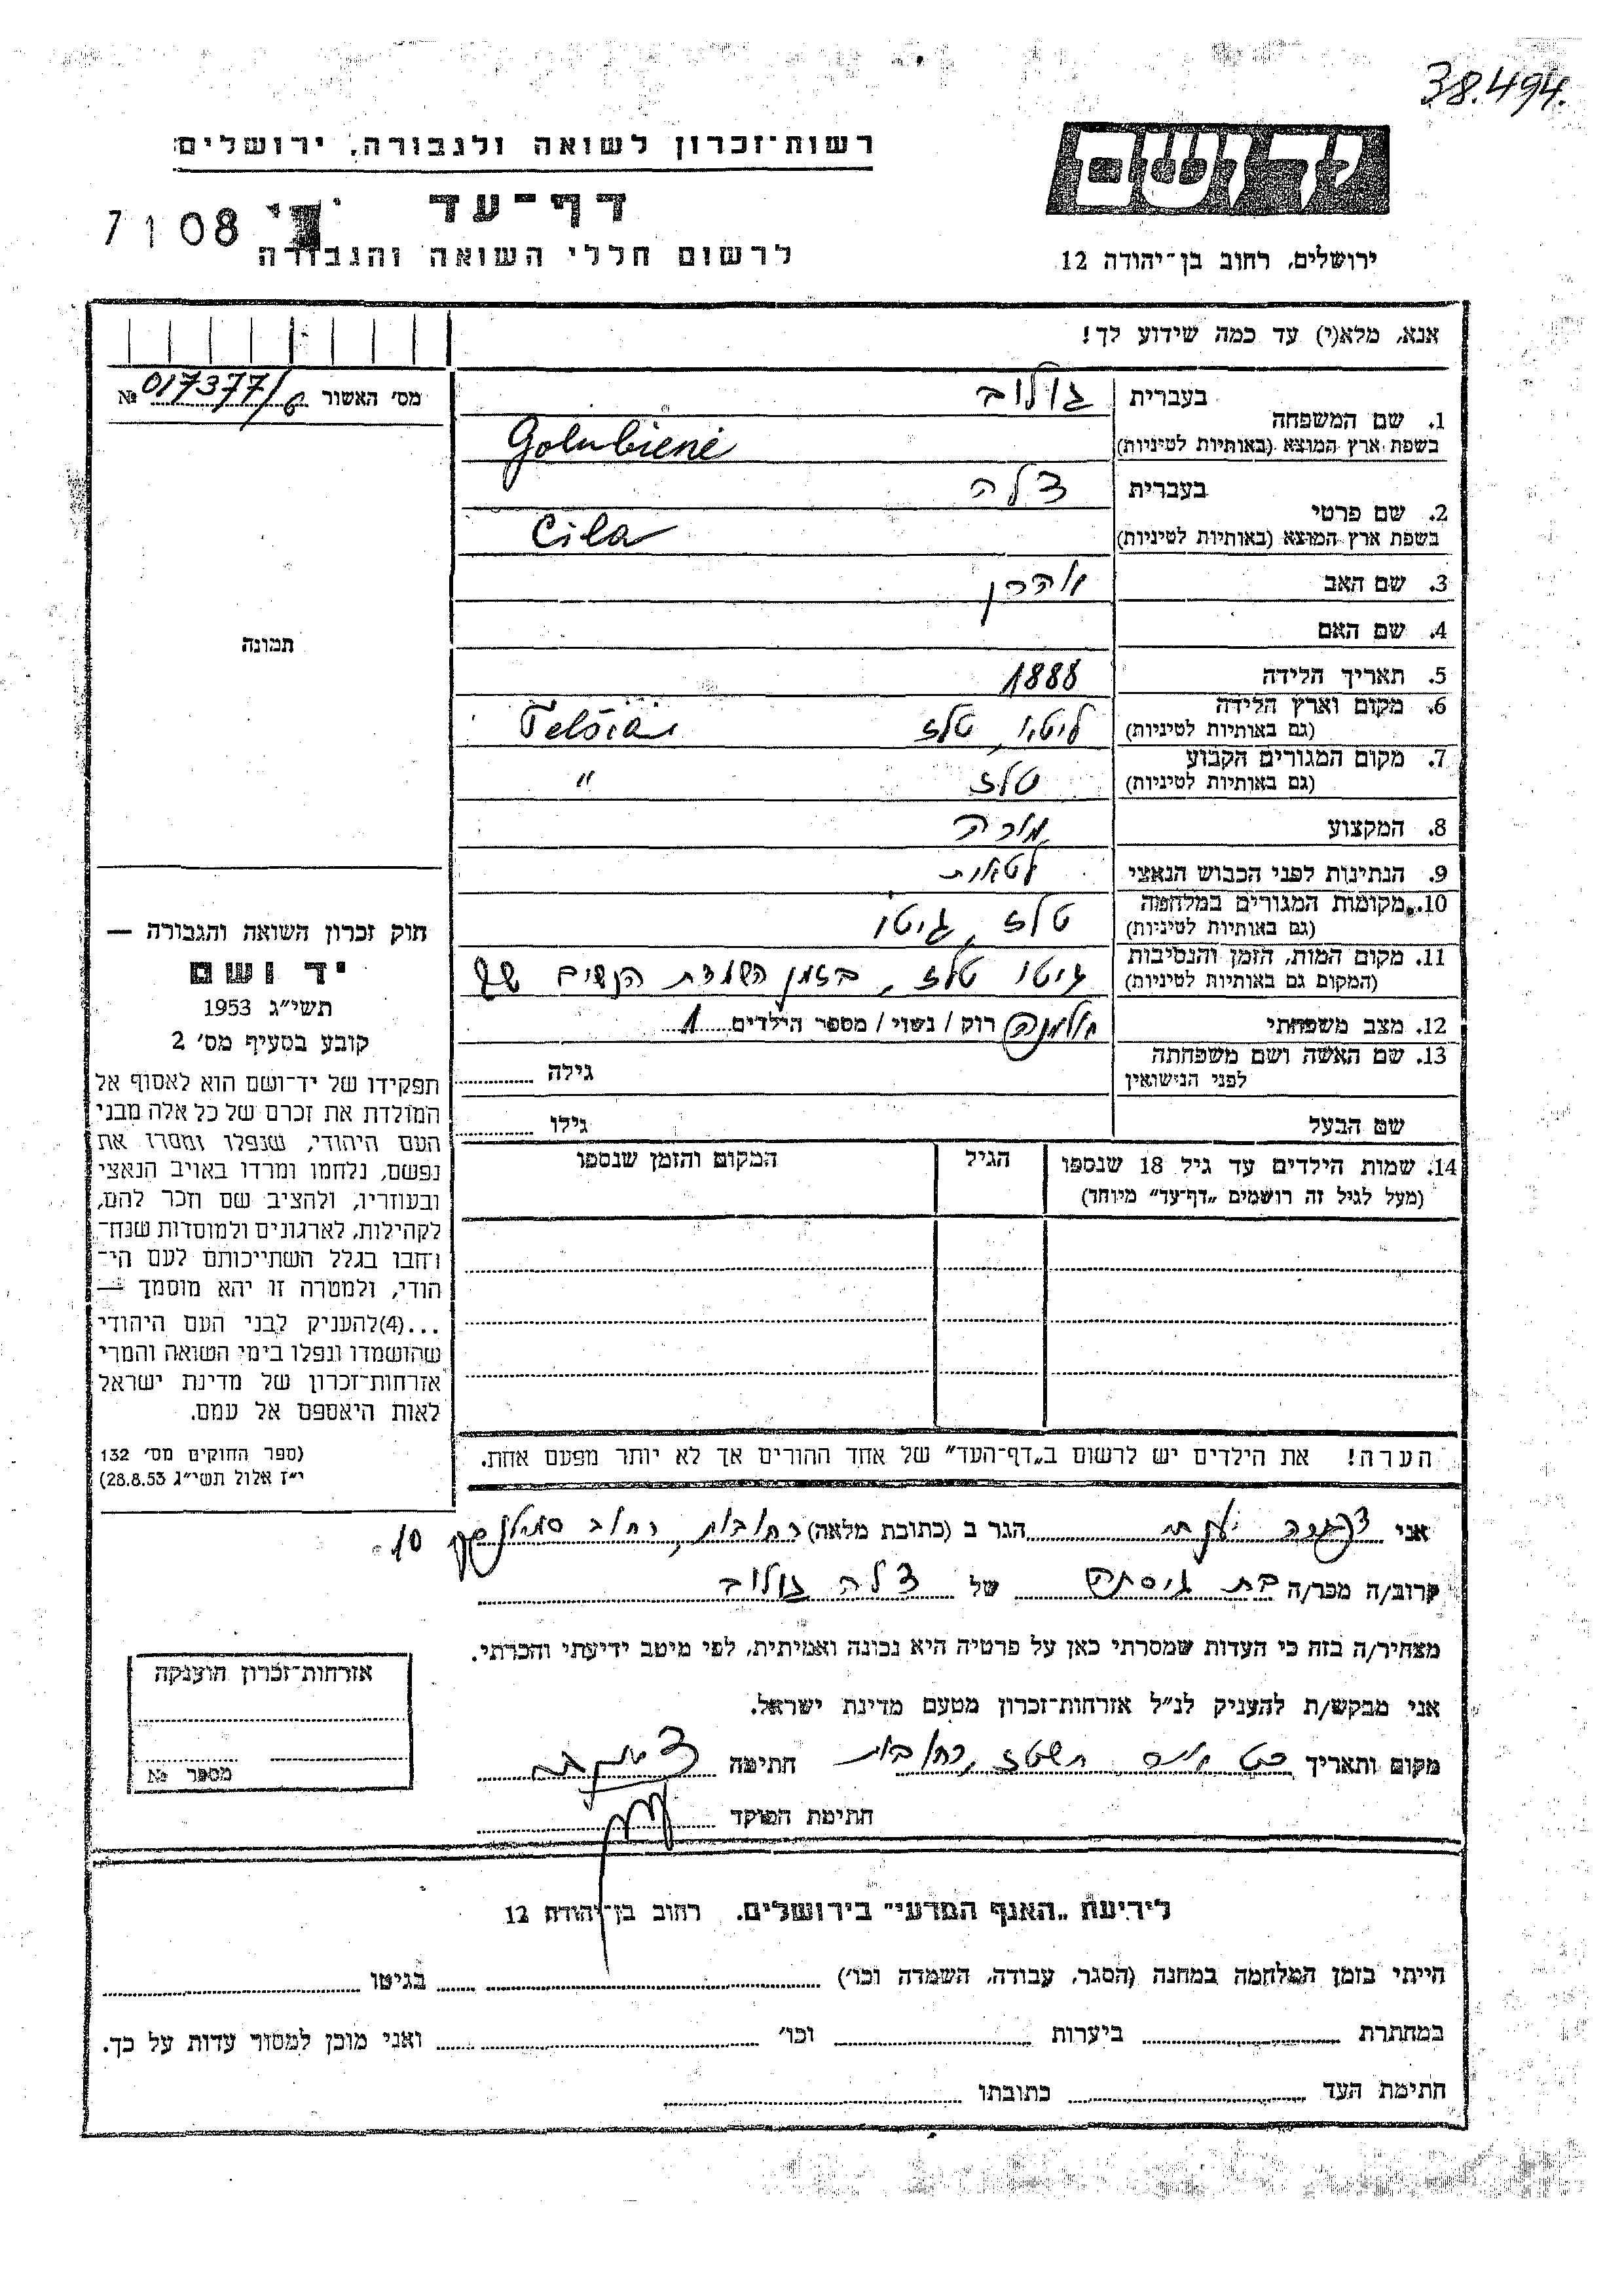 38.494.
יד ושם
רשות־זכרון לשואה ולגבורה, ירושלים
דף־עד
7108
לרשום חללי השואה והגבורה
ירושלים, רחוב בן־יהודה 12
אנא, מלא(י) עד כמה שידוע לך!
מס׳ האשור 017377/6 №
1. שם המשפחה
בעברית גולוב
בשפת ארץ המוצא (באותיות לטיניות) Golubienė
2. שם פרטי
בעברית צלה
בשפת ארץ המוצא (באותיות לטיניות) Cila
3. שם האב אהרן
4. שם האם
תמונה
5. תאריך הלידה 1888
6. מקום וארץ הלידה
(גם באותיות לטיניות) ליטא, טלז Telšiai
7. מקום המגורים הקבוע
(גם באותיות לטיניות) טלז "
8. המקצוע מורה
9. הנתינות לפני הכבוש הנאצי לטאית
10. מקומות המגורים במלחמה
(גם באותיות לטיניות) טלז, גיטו
11. מקום המות, הזמן והנסיבות
(המקום גם באותיות לטיניות) גיטו טלז, בזמן השמדת הנשים
12. מצב משפחתי אלמנה רוק / נשוי / מספר הילדים 1
13. שם האשה ושם משפחתה
לפני הנישואין
גילה
שם הבעל
גילו
14. שמות הילדים עד גיל 18 שנספו
(מעל לגיל זה רושמים „דף־עד” מיוחד)
הגיל
המקום והזמן שנספו
חוק זכרון השואה והגבורה —
יד ושם
תשי״ג 1953
קובע בסעיף מס׳ 2
תפקידו של יד־ושם הוא לאסוף אל
המולדת את זכרם של כל אלה מבני
העם היהודי, שנפלו ומסרו את
נפשם, נלחמו ומרדו באויב הנאצי
ובעוזריו, ולהציב שם וזכר להם,
לקהילות, לארגונים ולמוסדות שנח־
רחבו בגלל השתייכותם לעם הי־
הודי, ולמטרה זו יהא מוסמך —
...(4)להעניק לבני העם היהודי
שהושמדו ונפלו בימי השואה והמרי
אזרחות־זכרון של מדינת ישראל
לאות היאספם אל עמם.
(ספר החוקים מס׳ 132
י״ז אלול תשי״ג 28.8.53)
הערה! את הילדים יש לרשום ב„דף־העד” של אחד ההורים אך לא יותר מפעם אחת.
אני הגר ב (כתובת מלאה) רחובות, רחוב 10
קרוב/ה מכר/ה בת גיסתה של צלה גולוב
מצהיר/ה בזה כי העדות שמסרתי כאן על פרטיה היא נכונה ואמיתית, לפי מיטב ידיעתי והכרתי.
אני מבקש/ת להעניק לנ״ל אזרחות־זכרון מטעם מדינת ישראל.
מקום ותאריך רחובות חתימה
חתימת הפוקד
אזרחות־זכרון הוענקה
מספר №
לידיעת „האגף המדעי” בירושלים. רחוב בן־יהודה 12
הייתי בזמן המלחמה במחנה (הסגר, עבודה, השמדה וכו׳) בגיטו
במחתרת ביערות וכו׳ ואני מוכן למסור עדות על כך.
חתימת העד כתובתו